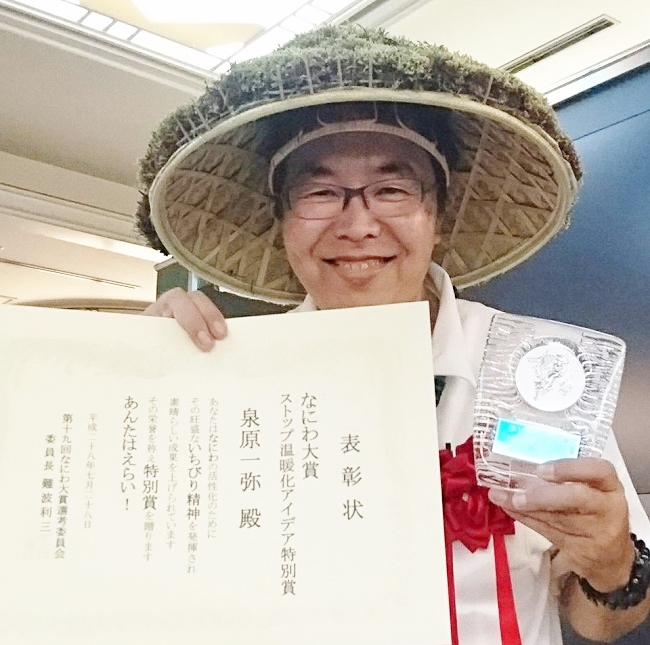 表彰状
なにわ大賞
ストップ温暖化アイデア特別賞
泉原一弥 殿
あなたはなにわの活性化のために
その旺盛ないちびり精神を発揮され
素晴らしい成果を上げられています
その栄誉を称え特別賞を贈ります
あんたはえらい!
平成二十八年七月二十八日
第十九回なにわ大賞選考委員会
委員長 難波利三